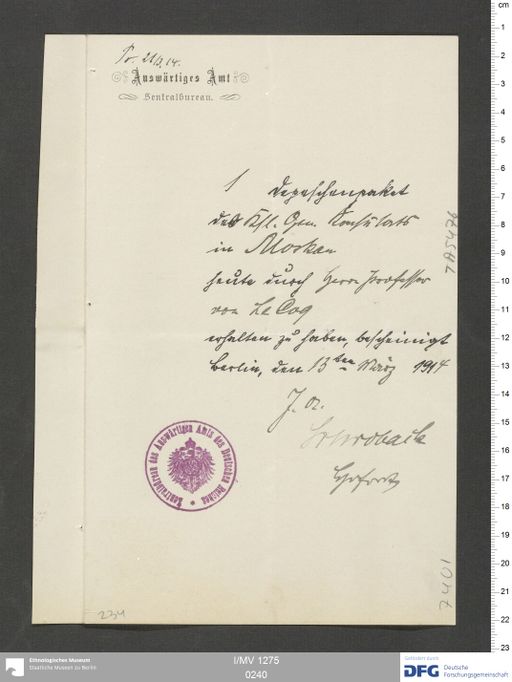 Pr. 21/3.14.
Auswärtiges Amt
Zentralbureau.
1 Depeschenpaket
des Ksl. Gen. Konsulats
in Moskau
heute durch Herrn Professor
von Le Coq
erhalten zu haben, bescheinigt
Berlin, den 13ten März 1914
Zentralbureau des Auswärtigen Amts des Deutschen Reiches
7A5476
7401
234
cm
1
2
3
4
5
6
7
8
9
10
11
12
13
14
15
16
17
18
19
20
21
22
23
Ethnologisches Museum
Staatliche Museen zu Berlin
I/MV 1275
0240
Gefördert durch
DFG Deutsche
Forschungsgemeinschaft